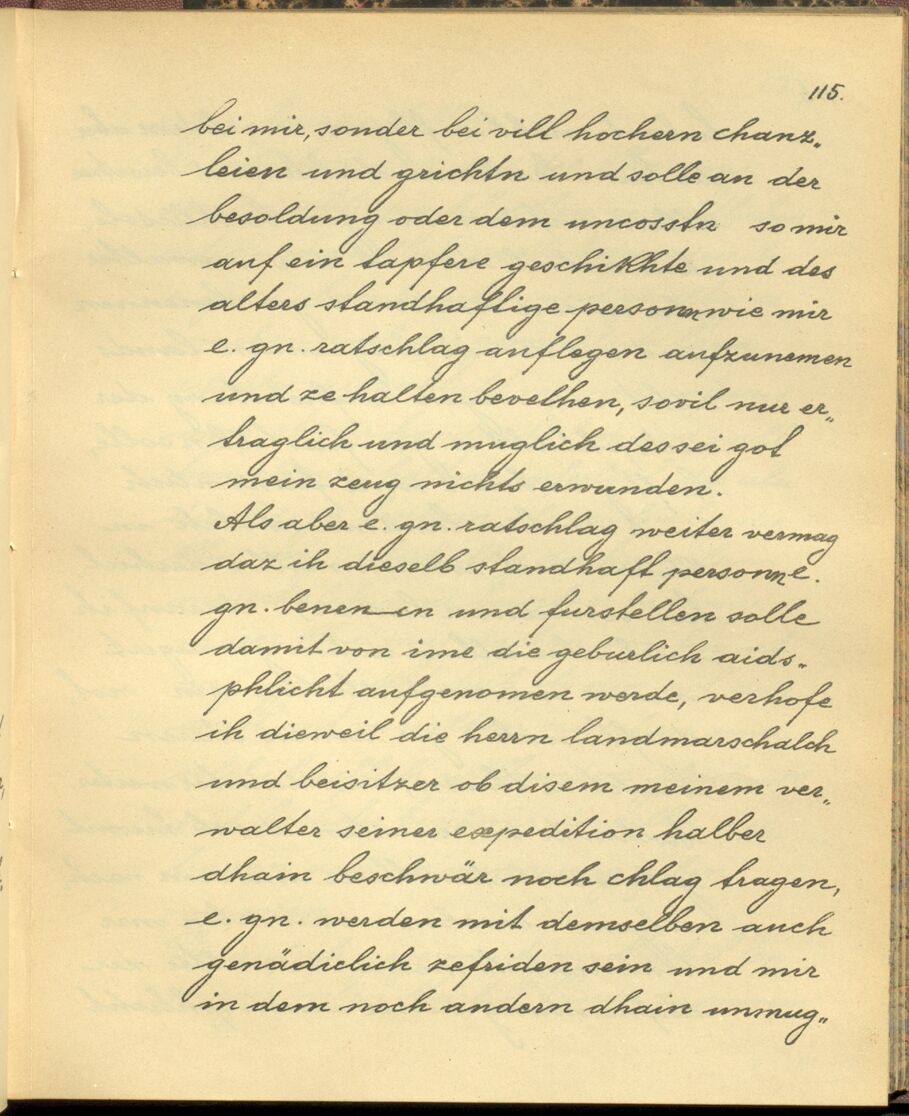 115.
bei mir, sonder bei vill hochern chanz„
leien und grichtn und solle an der
besoldung oder dem uncosstn so mir
auf ein tapfere geschikhte und des
alters standhaftige personn wie mir
e. gn. ratschlag auflegen aufzunemen
und ze halten bevelhen, sovil nur er„
traglich und muglich des sei got
mein zeug nichts erwunden.
Als aber e. gn. ratschlag weiter vermag
daz ih dieselb standhaft personn e.
gn. benenen und furstellen solle
damit von ime die geburlich aids„
phlicht aufgenomen werde, verhofe
ih dieweil die herrn landmarschalch
und beisitzer ob disem meinem ver„
walter seiner expedition halber
dhain beschwär noch chlag tragen,
e. gn. werden mit demselben auch
genädiclich zefriden sein und mir
in dem noch andern dhain unmug„